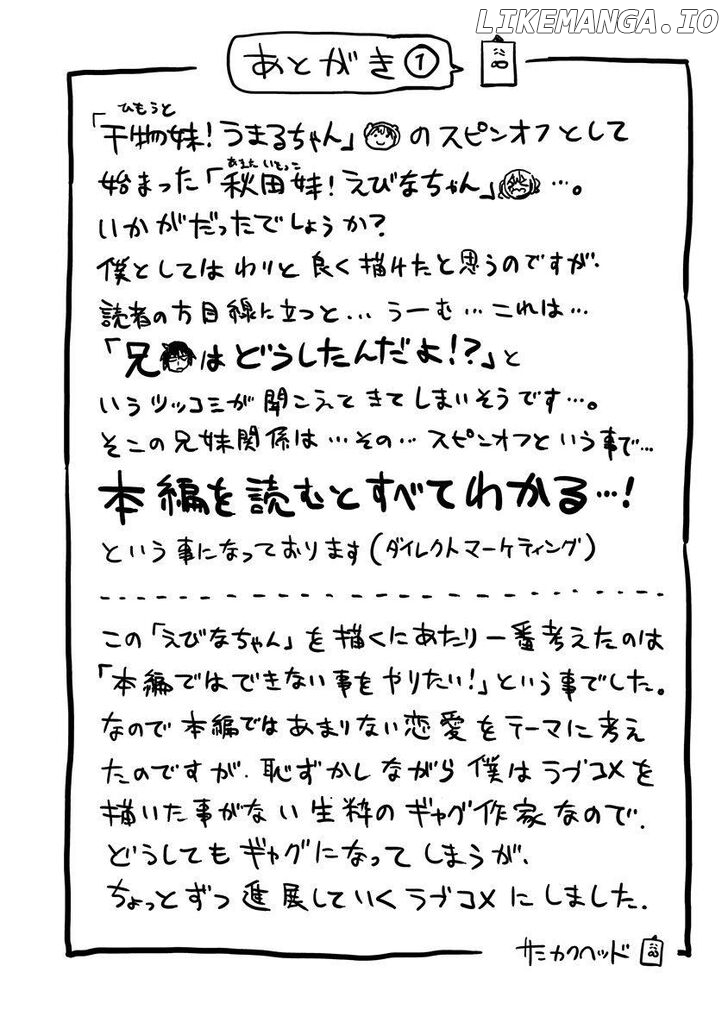 LIKEMANGA.IO
あとがき①
ひもうと
「干物妹!うまるちゃん」のスピンオフとして
あきたいもうと
始まった「秋田妹!えびなちゃん」…。
いかがだったでしょうか?
僕としてはわりと良く描けたと思うのですが、
読者の方目線に立つと…うーむ…これは…
「兄はどうしたんだよ!?」と
いうツッコミが聞こえてきてしまいそうです…。
そこの兄妹関係は…その…スピンオフという事で…
本編を読むとすべてわかる…!
という事になっております(ダイレクトマーケティング)
この「えびなちゃん」を描くにあたり一番考えたのは
「本編ではできない事をやりたい!」という事でした。
なので本編ではあまりない恋愛をテーマに考え
たのですが、恥ずかしながら僕はラブコメを
描いた事がない生粋のギャグ作家なので、
どうしてもギャグになってしまうが、
ちょっとずつ進展していくラブコメにしました。
サンカクヘッド